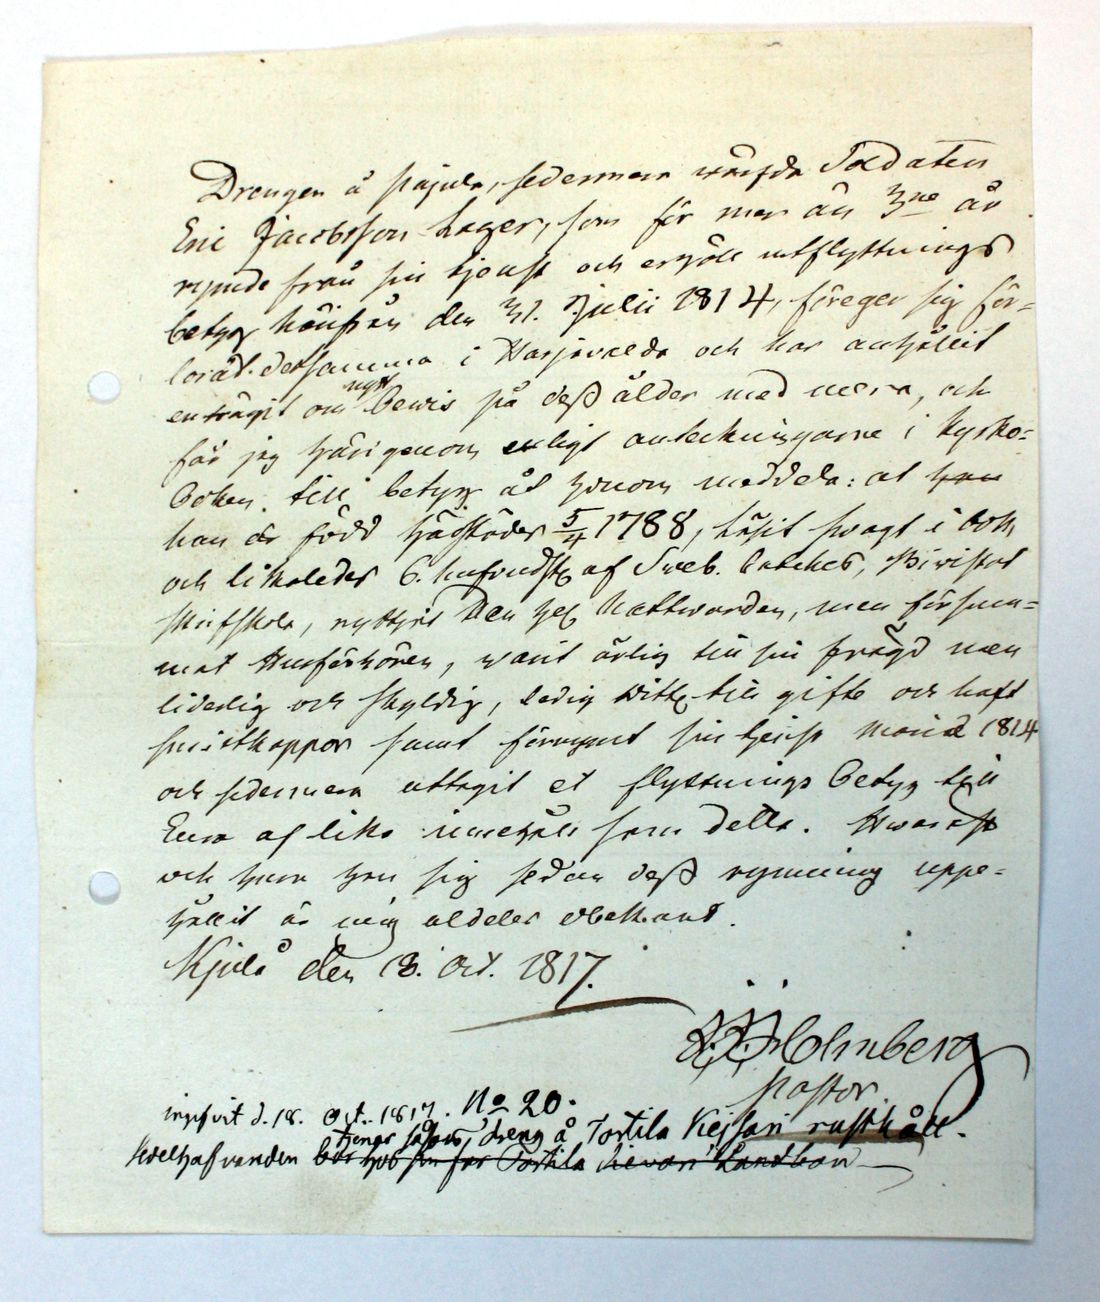 Drengen å Pajula, sedermera wärfda Soldaten
Eric Jacobsson Lager, som för mer än 3ne år
rymde från sin tjenst och erhöll utflyttnings
betyg härifrån den 31. Julii 1814, föreger sig för-
lorat detsamma i Harjavalda och har anhållit
om nytt Bewis på dess ålder med mera, och
får jag härigenom enligt anteckningarne i Kyrko-
boken till betyg åt honom meddela: at han
han är född härstädes 5/4 1788, läsit swagt i bok
och likaledes af Sveb. Catches,
skriftskola, nyttjat Den hel. Nattwarden, men försum-
mat Husförhören, warit ärlig till sin frägd men
liderlig och skyldig, ledig till gifte och haft
smittkoppor samt förrymt sin tjenst 1814
och sedermera uttagit et flyttnings betyg till
Eura af lika innehåll som detta. Hwaräst
och huru han sig sedan dess rymning uppe-
hållit är mig aldeles obekant.
Kjulå den 18. Oct. 1817.
Holmberg
Pastor.
ingifvit d. 18. Oct. 1817. No 20.
tjenar såsom dreng å Tortila Kejsari rusthåll.
bor hos sin far Tortila